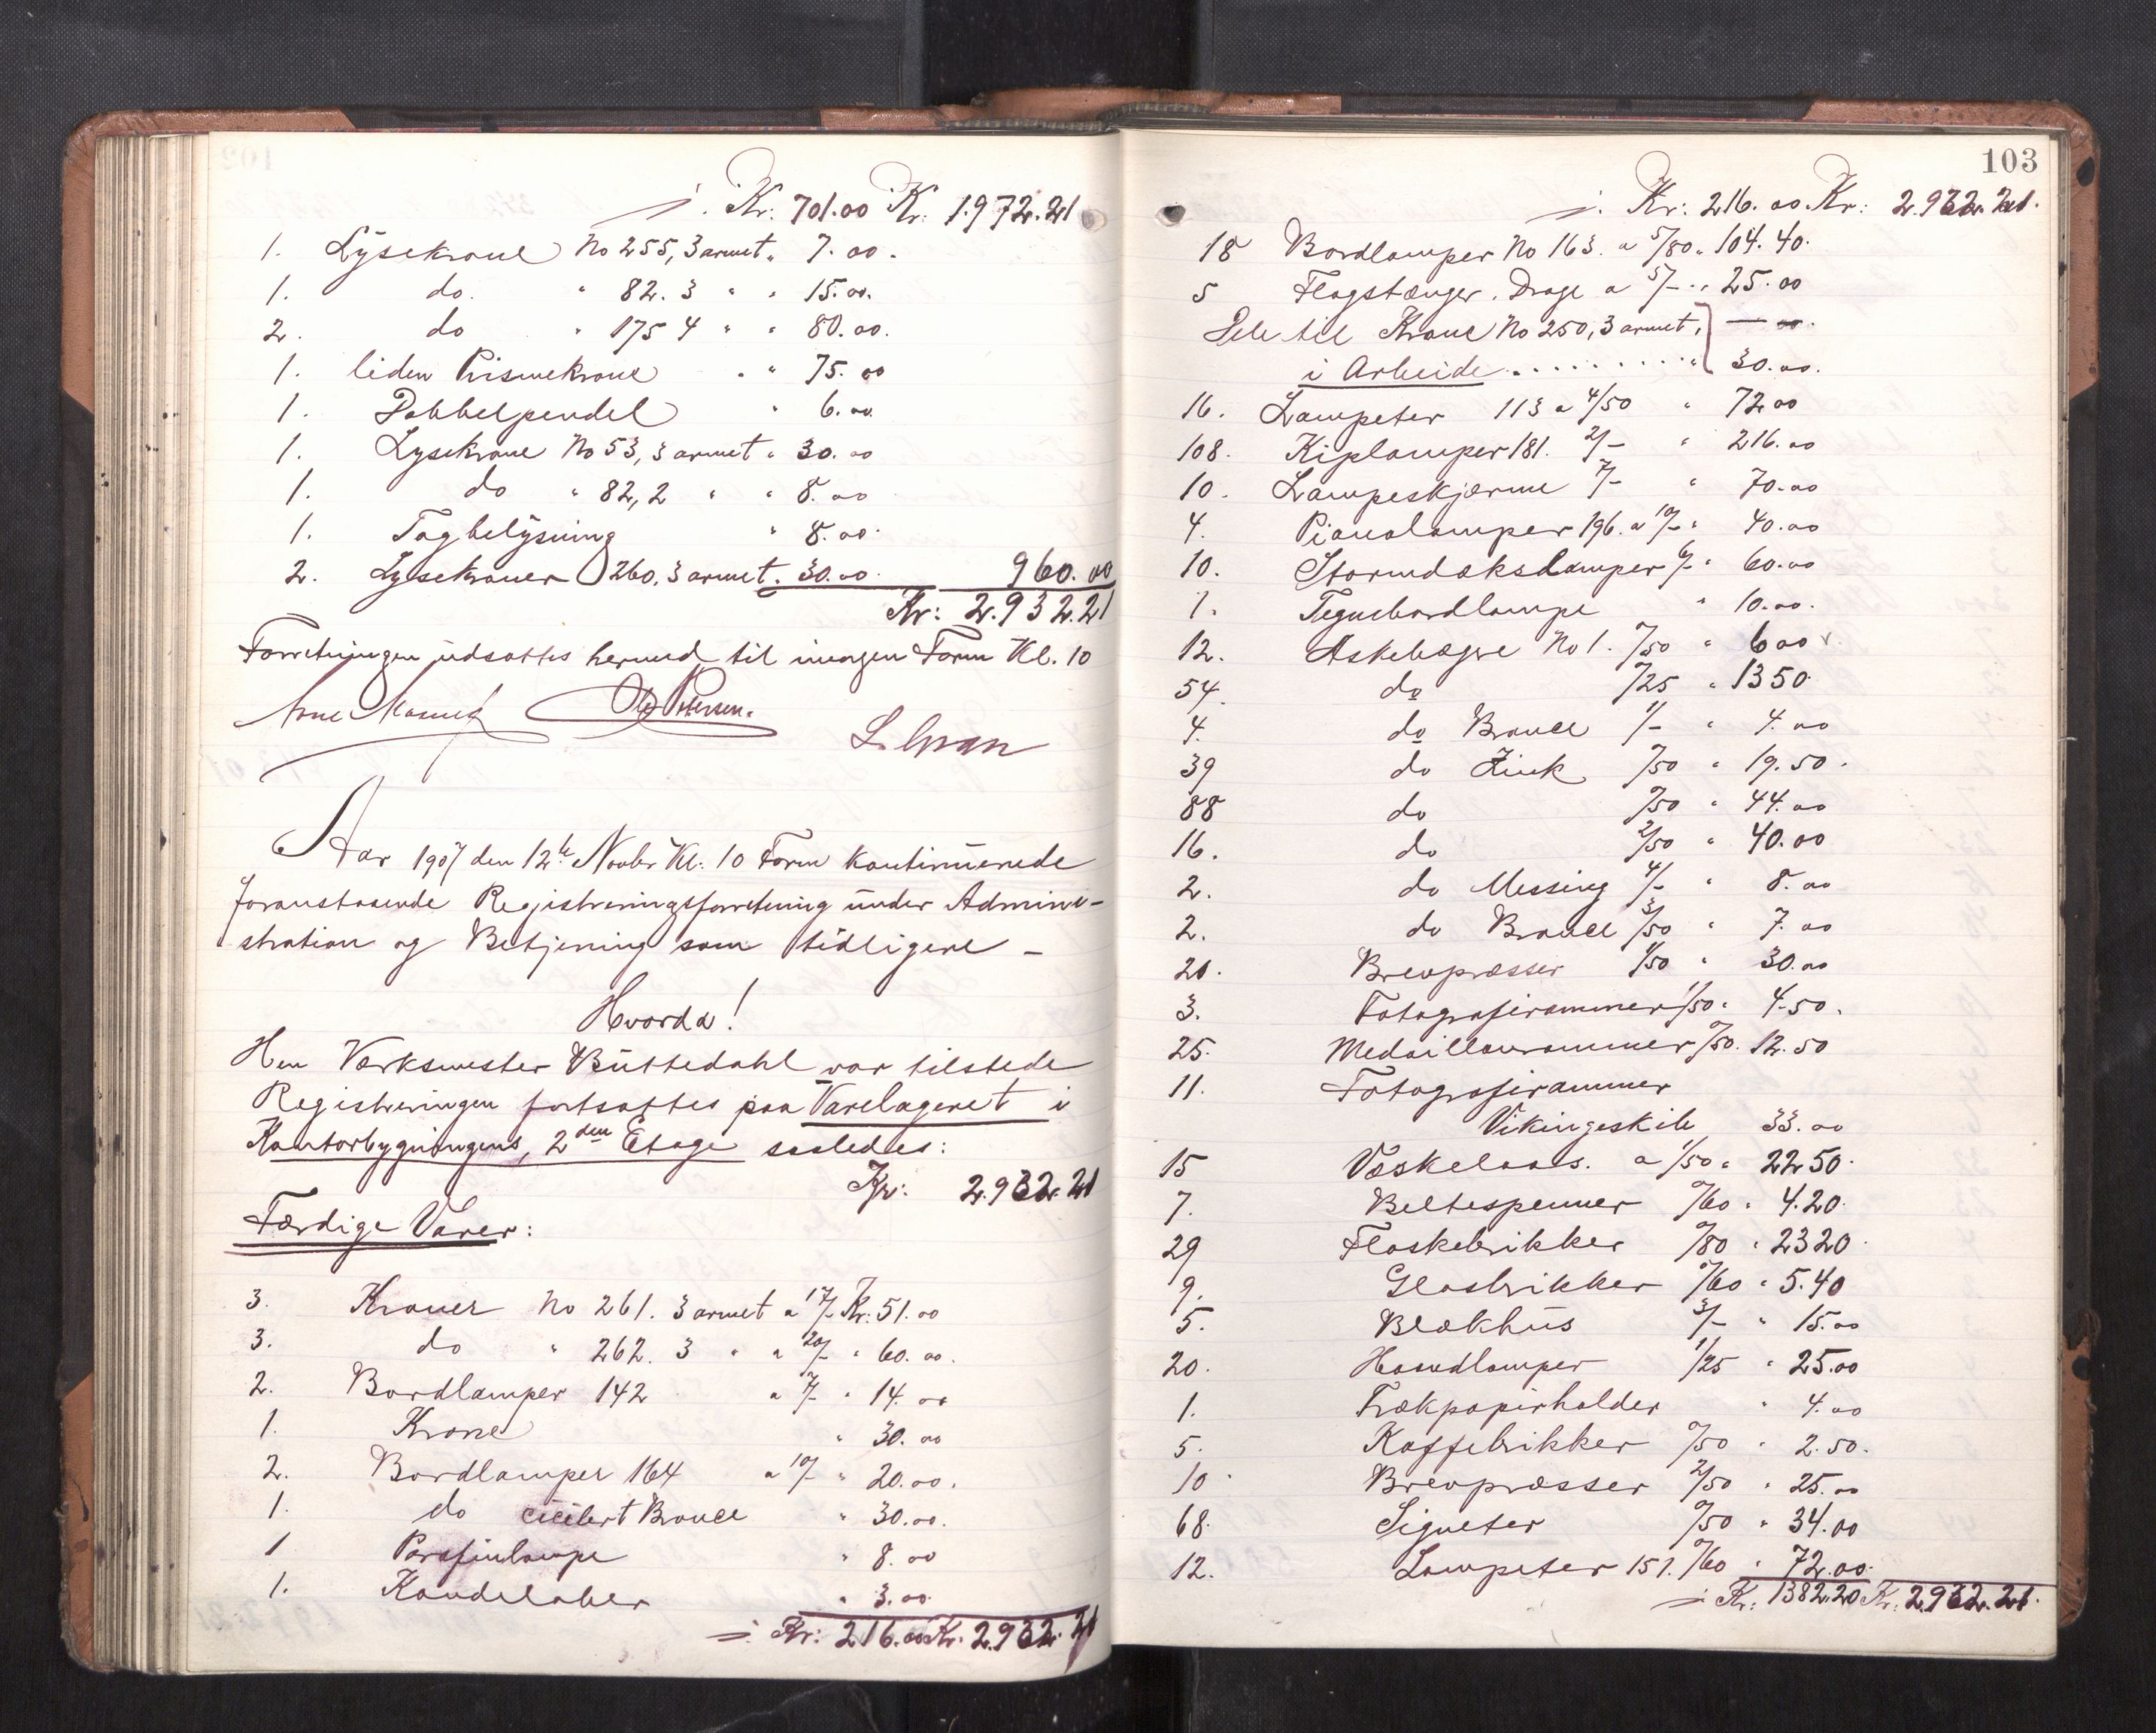 ÷. Kr: 701.00 Kr: 1.972.21
1. Lysekrone No 255, 3 armet " 7.00.
1. do. " 82. 3 " " 15.00.
2. do " 175 4 " " 80.00.
1. liden Prismekrone " " 75.00
1. Dobbelpendel " 6.00.
1. Lysekrone No 53, 3 armet " 30.00
1. do " 82, 2 " " 8.00
1. Tagbelysning " 8.00.
2. Lysekroner 260, 3 armet. 30.00. 960.00
Kr: 2.932.21
Forretningen udsattes hermed til imorgen Form Kl. 10
Ole Petersen.
Aar 1907 den 12te Novbr Kl. 10 Form kontinuerede
foranstaaende Registreringsforretning under Admini-
stration og Betjening som tidligere –
Hvorda!
Herr Værksmester Büttedahl var tilstede
Registreringen fortsattes paa Varelageret i
Kontorbygningens, 2den Etage saaledes:
Kr: 2.932.21
Færdige Varer:
3. Kroner No 261. 3 armet a 17/- Kr: 51.00
3. do " 262. 3 " a 20/- " 60.00.
2. Bordlamper 142 a 7/- " 14.00
1. Krone " 30.00
2. Bordlamper 164 a 10/- " 20.00.
1. do cicilert Bronce " 30.00.
1 Parafinlampe " 8.00
1. Kandelaber " 3.00.
÷ Kr: 216.00 Kr. 2.932.21
103
÷. Kr: 216.00. Kr: 2.932.21.
18 Bordlamper No 163. a 5/80 " 104.40.
5 Flagstænger, Drage a 5/- " 25.00
Dele til Krone No 250, 3 armet, — 00.
i Arbeide . . . . . . . . . " 30.00.
16. Lampeter 113 a 4/50 " 72.00
108. Kiplamper 181. 2/- " 216.00
10. Lampeskjærme 7/- " 70.00
4. Pianolamper 196. a 10/- " 40.00
10. Stormdækslamper 6/- " 60.00
1. Tegnebordlampe " 10.00.
12. Askebægre No 1. 0/50 " 6 00
54. do 0/25 " 13 50
4. do Bronce 1/- " 4.00
39 do Zink 0/50 " 19.50.
88 do 0/50 " 44.00
16. do 2/50 " 40.00
2. do Messing 4/- " 8.00
2. do Bronce 3/50 " 7.00
20. Brevpræsser 1/50 " 30.00
3. Fotografirammer 1/50 " 4.50.
25. Medaillonrammer 0/50. 12.50
11. Fotografirammer
Vikingeskib 33.00
15 Væskelaas. a 1/50 " 22 50.
7. Beltespenner 0/60 " 4.20.
29 Flaskebrikker 0/80 " 23 20.
9. Glasbrikker 0/60 " 5.40
5. Blækhus 3/- " 15.00
20. Haandlamper 1/25 " 25.00
1. Trækpapirholder " 4.00
5. Kaffebrikker 0/50 " 2.50.
10. Brevpræsser 2/50 " 25.00
68. Signeter 0/50 " 34.00
12. Lampeter 151. 0/60 " 72.00.
÷ Kr: 1382.20 Kr: 2.932.21.